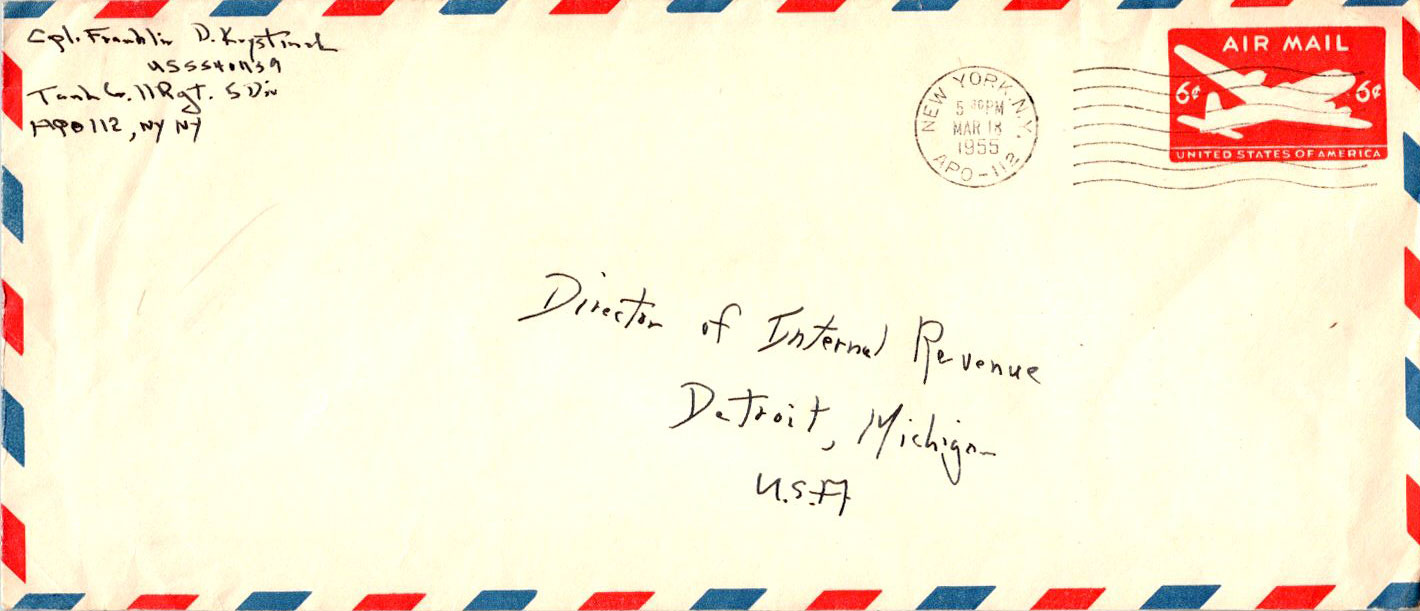 Cpl. Franklin D.
Tank Co. 11 Rgt. 5 Div
APO 112, NY NY
NEW YORK, N.Y.
5 30PM
MAR 18
1955
APO-112
AIR MAIL
6¢ 6¢
UNITED STATES OF AMERICA
Director of Internal Revenue
Detroit, Michigan
U.S.A